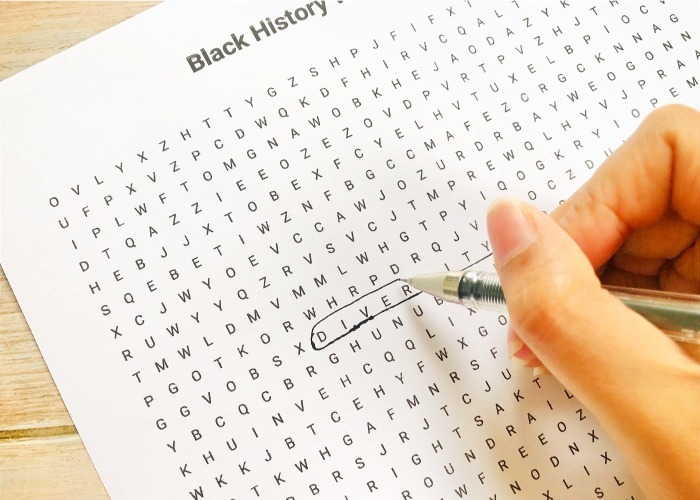 Black History
O V L Y X Z H T T Y G Z S H P J F I F X T
U F P X V Z P C D W Q K D F H I R V C Q A L T
I P L W F T O M G N A W O B K H E J A O D A Z Y K
D T Q A Z Z I E E O Z E Z O V D P V R T P V Z H J T H
H E B J J X T O B E X F C Y E L H V T U X E L B P I O C V
S Q E B E T I W Z N F B G C C M A F E Z C R G C K N N A G
X C J W Y O E V C C A W J O Z U R D R B A Y W E O G O N N
R U W Y Y Q Z R V S V C J T M P R E W Q L H Y V J P R A A
T M W L D M V M M L W H G T P Y I Q O G K R Y I O P E M
P G O T K O R W H R P D R Q J V O C Z D U
G G V O B S X D I V E R I T Y
Y B C Q C B R G H U N U B
K H U I N V E H C Q Q L I X
W K K J B T C E H Y F W X G O
T K W H G A F M N R S F
B R S J R J T C J U
R I G H T S A K T
O U N D R A I L
W F R E E O Z
N O D N X
L I X
S L